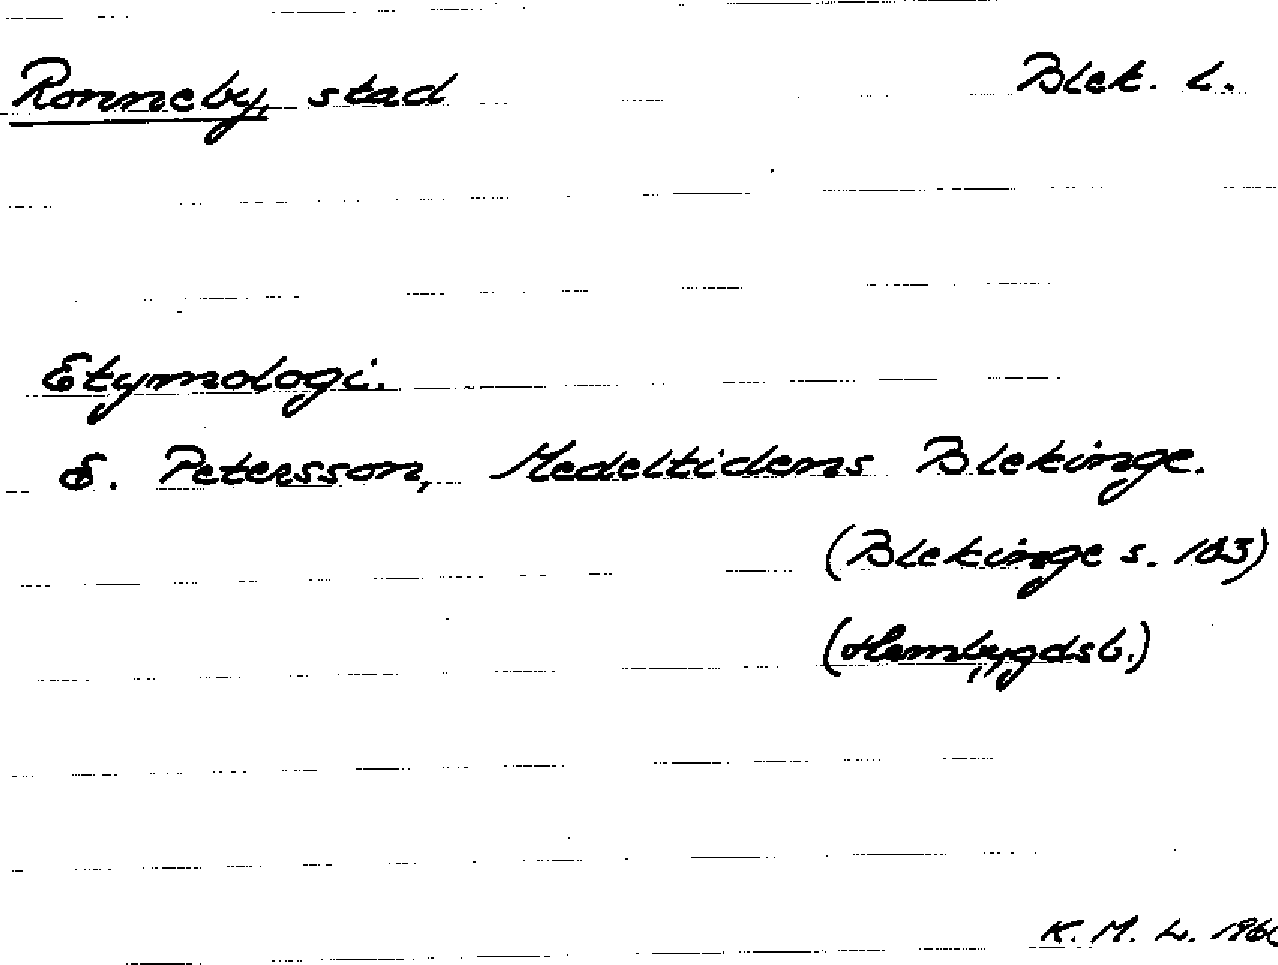 Ronneby, stad Blek. L.
Etymologi.
E. Petersson, Medeltidens Blekinge.
(Blekinge s. 103)
(Hembygdsb.)
K. M. L.